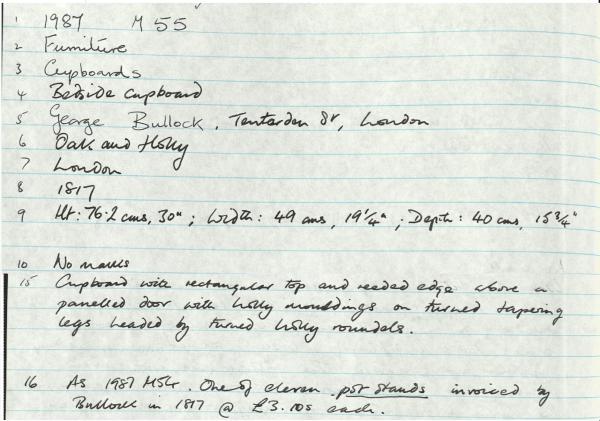 1 1987 M 55
2 Furniture
3 Cupboards
4 Bedside cupboard
5 George Bullock, Tenterden St, London
6 Oak and Holly
7 London
8 1817
9 Ht: 76.2 cms, 30"; Width: 49 cms, 19 1/4"; Depth: 40 cms, 15 3/4"
10 No marks
15 Cupboard with rectangular top and reeded edge above a
panelled door with holly mouldings on turned tapering
legs headed by turned holly roundels.
16 As 1987 M54. One of eleven pot stands invoiced by
Bullock in 1817 @ £3.10s each.